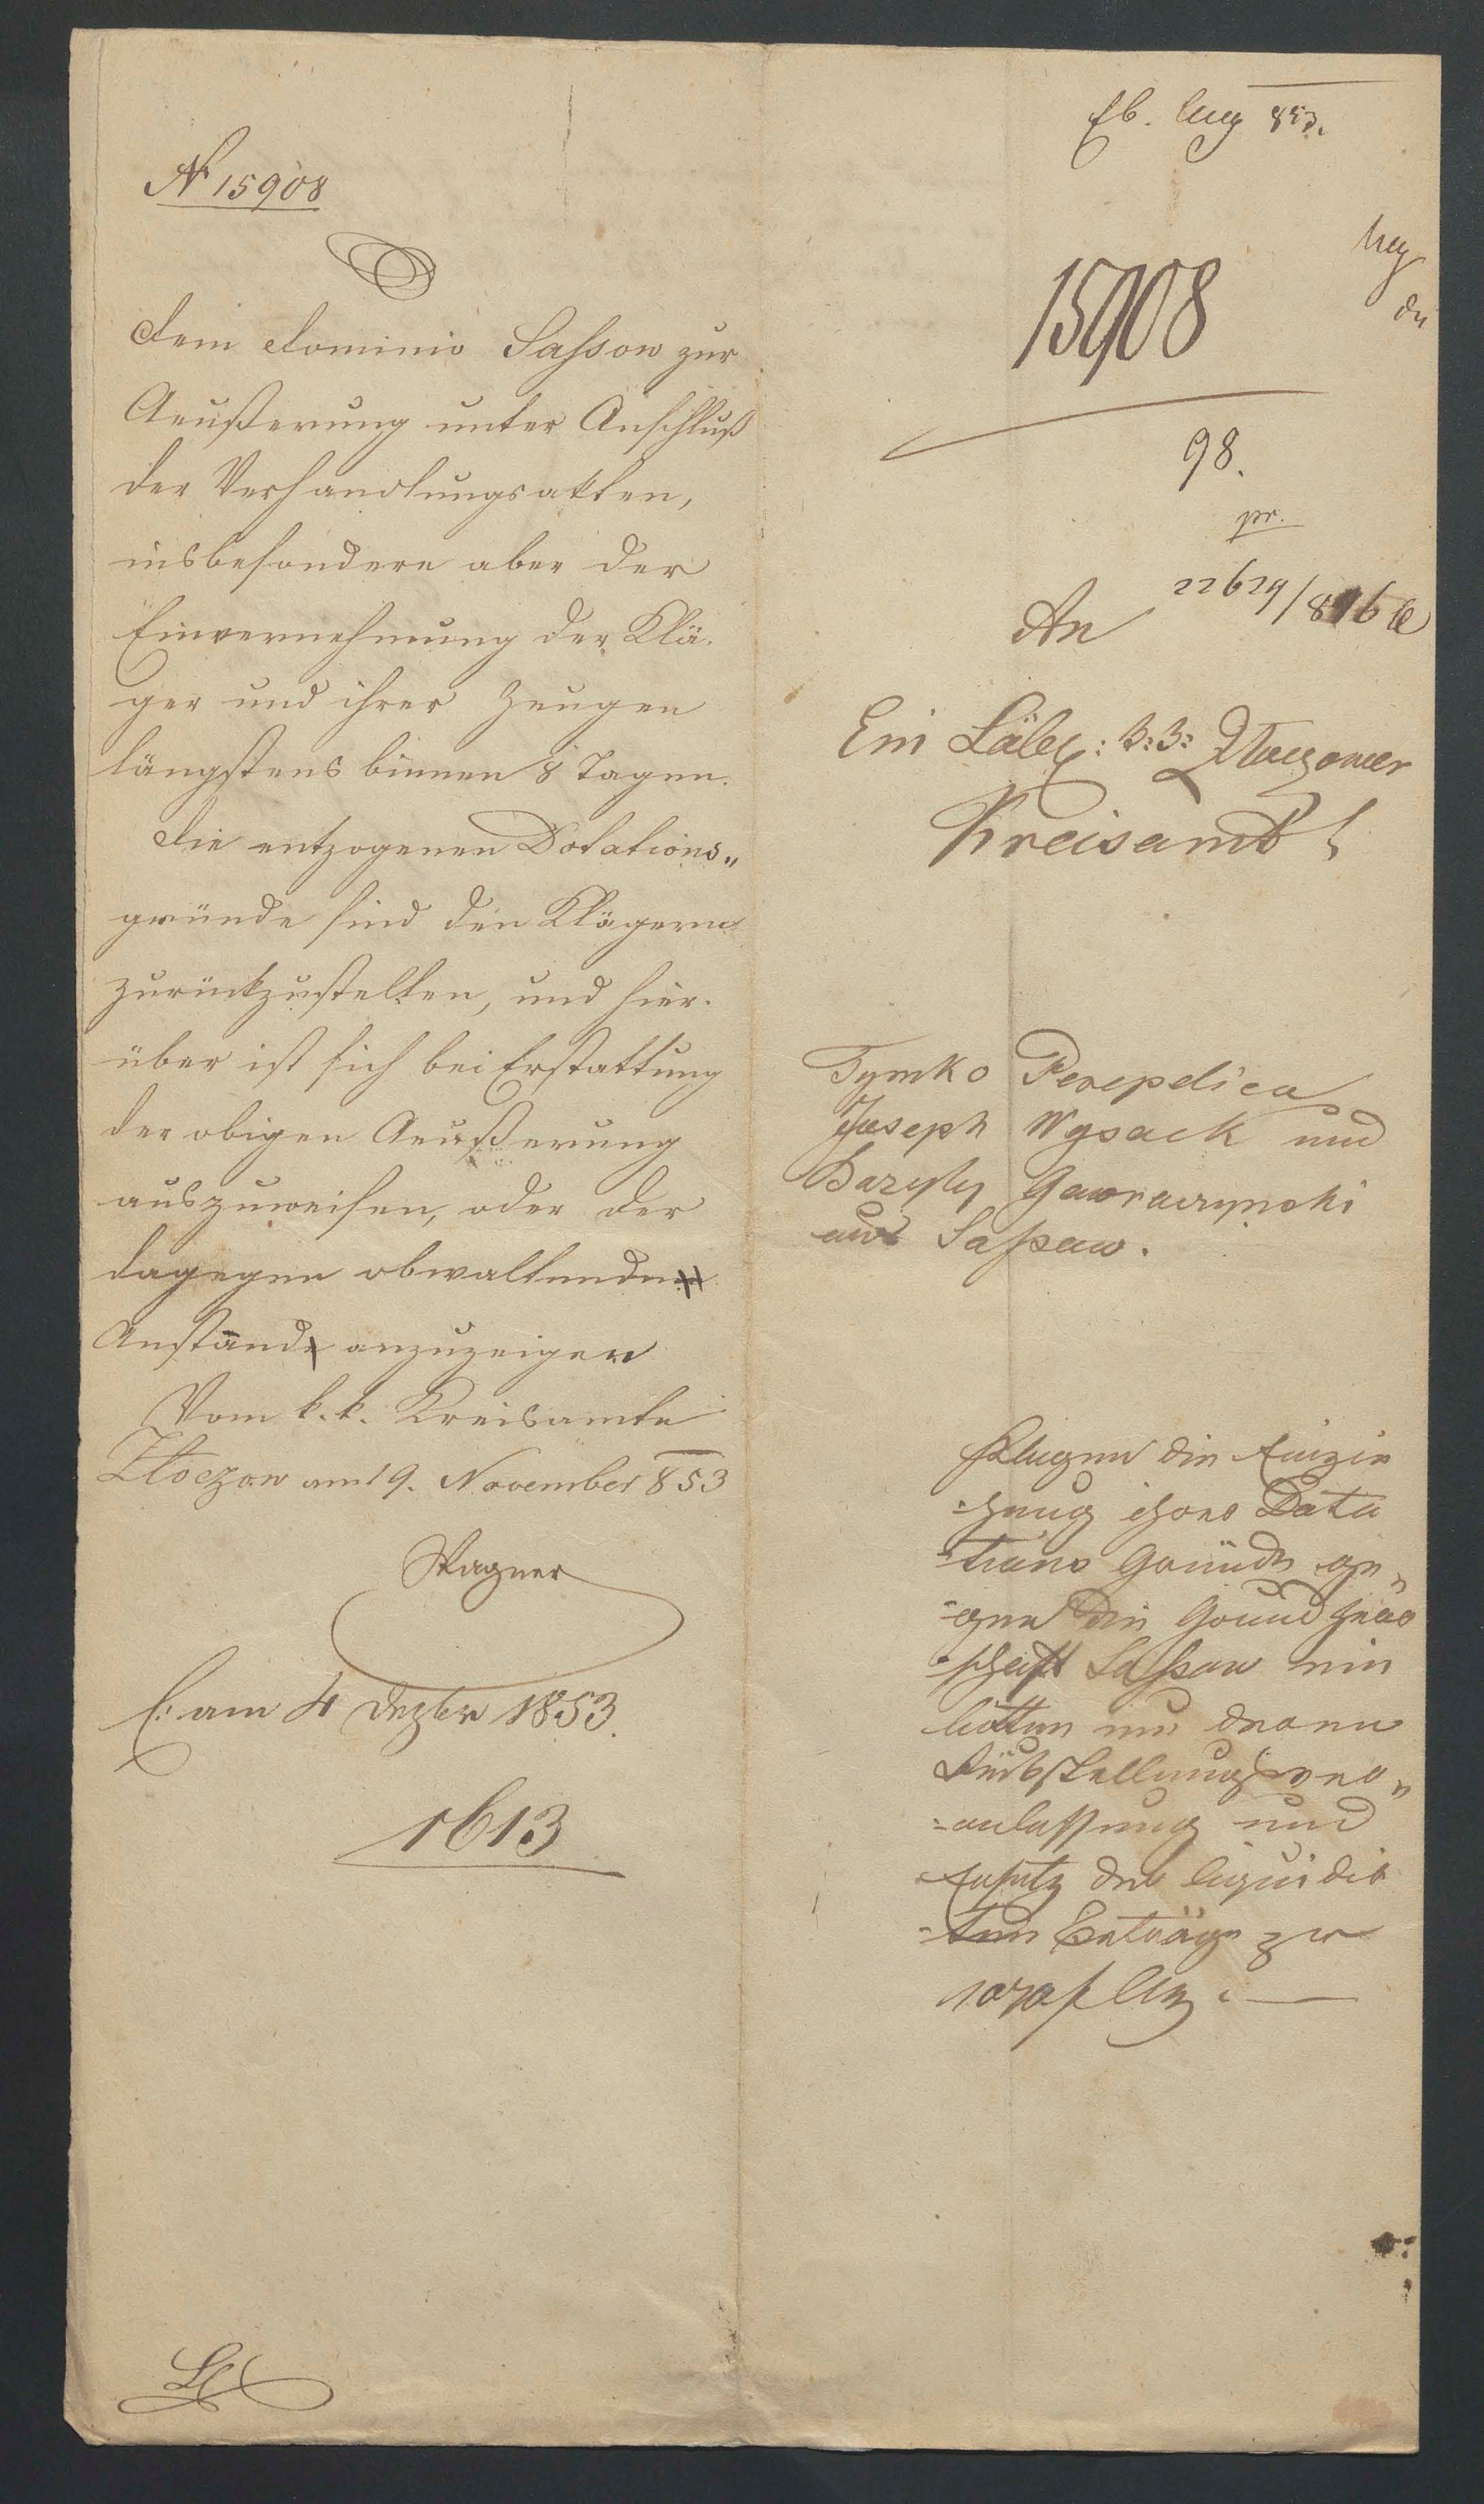 N 15908
Dem Dominio Sassow zur
Aeußerung unter Anschluß
der Verhandlungsakten,
insbesondere aber der
Einvernehmung der Klä-
ger und ihrer Zeugen
längstens binnen 8 Tagen.
Die entzogenen Dotations„
gründe sind den Klägern
zurückzustellen, und hier-
über ist sich bei Erstattung
der obigen Aeußerung
auszuweisen, oder der
dagegen obwaltende
Anstand anzuzeigen
Vom k. k. Kreisamte
Złoczow am 19. November 853
Wagner
E: am 4 Dezber 1853.
1613
853.
15908
98.
pr.
22629/
An
Ein Löbl: k: k: Złoczower
Kreisamt
Tymko Perepelica
Joseph Wysack und
Bazyly Gawraczynski
aus Sassow.
klagen die Einzie
-hung ihres Dota
-tions Gründe ge„
-gen die Grund herr
-schaft Sassow ein
bitten um deren
Rückstellungs ver„
-anlassung und
Ersatz des liquidir
-ten Beträge zu